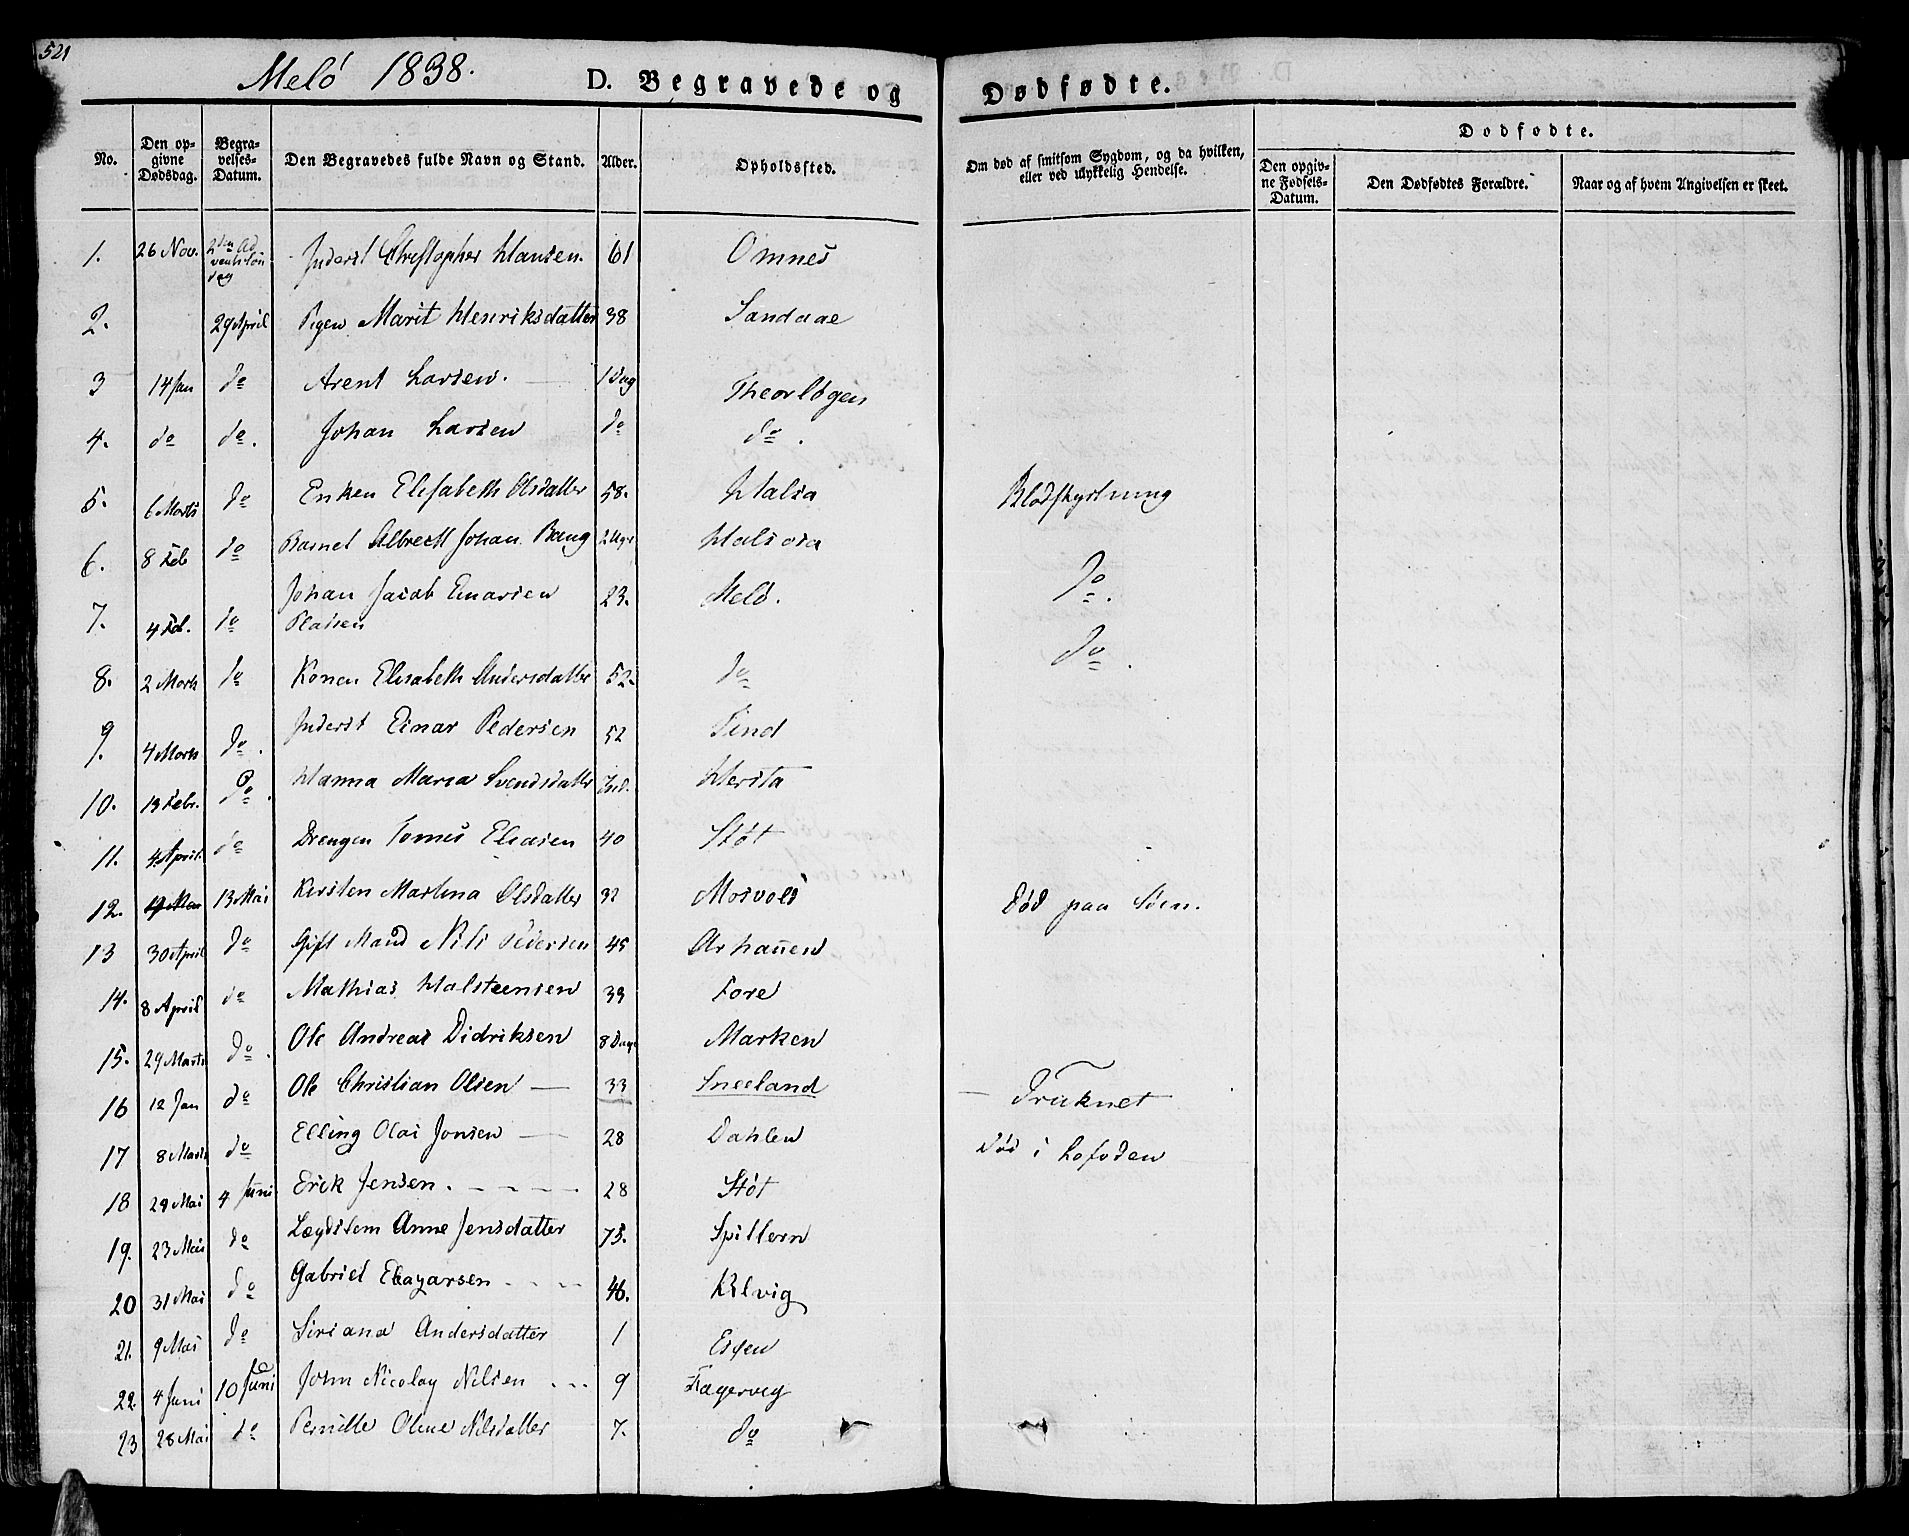 521
Melö 1838.
D. Begravede og Dødfødte.
No. | Den opgivne Dødsdag. | Begravelses-Datum. | Den Begravedes fulde Navn og Stand. | Alder. | Opholdssted. | Om død af smitsom Sygdom, og da hvilken, eller ved ulykkelig Hendelse. | Dødfødte. | Den opgivne Fødsels-Datum. | Den Dødfødtes Forældre. | Naar og af hvem Angivelsen er skeet.
1. | 26 Nov. | 2den Adventsøndag | Inderst Christopher Hansen. | 61 | Omnes
2. | 29 April | Pigen Marit Henriksdatter | 38 | Sandaae
3 | 14 Jan | do | Arent Larsen. | 1 Dag | Theorlögen
4. | do | do. | Johan Larsen | do | do.
5. | 6 Marts | do | Enken Elisabeth Olsdatter | 58. | Halsa | Blodstyrtning
6. | 8 Feb | do | Barnet Albrecht Johan Bang | 2 Uger | Halsosa | do.
7. | 4 Feb. | do | Johan Jacob Enarsen | 23. | Melö. | do.
8. | 2 Marts | do | Konen Elisabeth Andersdatter | 52. | do
9. | 4 Marts | do. | Inderst Einar Pedersen | 52 | Find
10. | 13 Febr. | do. | Hanna Maria Svendsdatter | Herita
11. | 4 April. | do | Drengen Tomes Eliasen | 40 | Stöt
12. | 13 Mai | Kirsten Martina Olsdatter | 32 | Mosvold | Död paa Söen.
13 | 30 April | do | Gift Mand Nils Pedersen | 45 | Arhaugen
14. | 8 April | do | Mathias Halsteensen | 39 | Fore
15. | 29 Marts | do. | Ole Andreas Didriksen | 8 Dage | Marken
16 | 12 Jan | do | Ole Christian Olsen — | 33 | Sneeland | — Druknet
17 | 8 Marts | do | Elling Olai Jonsen — | 28 | Dahlen | Död i Lofoden
18 | 29 Mai | 4 Juni | Erik Jensen. - - - - | 28 | Stöt
19. | 23 Mai | do | Lægdslem Anne Jensdatter | 75. | Spillern
20 | 31 Mai | do | Gabriel Ellagarsen - - - | 46. | Kilvig
21. | 9 Mai | do | Siriana Andersdatter | 1 | Esgen
22. | 4 Juni | 10 Juni | John Nicolay Nilsen . . . | 9 | Fagervig
23 | 28 Mai | do | Pernille Oline Nilsdatter | 7. | do